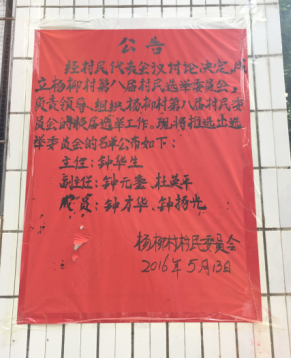 公告
经村民代表会议讨论决定,成
立杨柳村第八届村民选举委员会,
负责领导、组织杨柳村第八届村民委
员会的换届选举工作。现将推选出选
举委员会的名单公布如下:
主任:钟华生
副主任:钟元奎、杜英平
成员:钟才华、钟扬光
杨柳村村民委员会
2016年5月13日